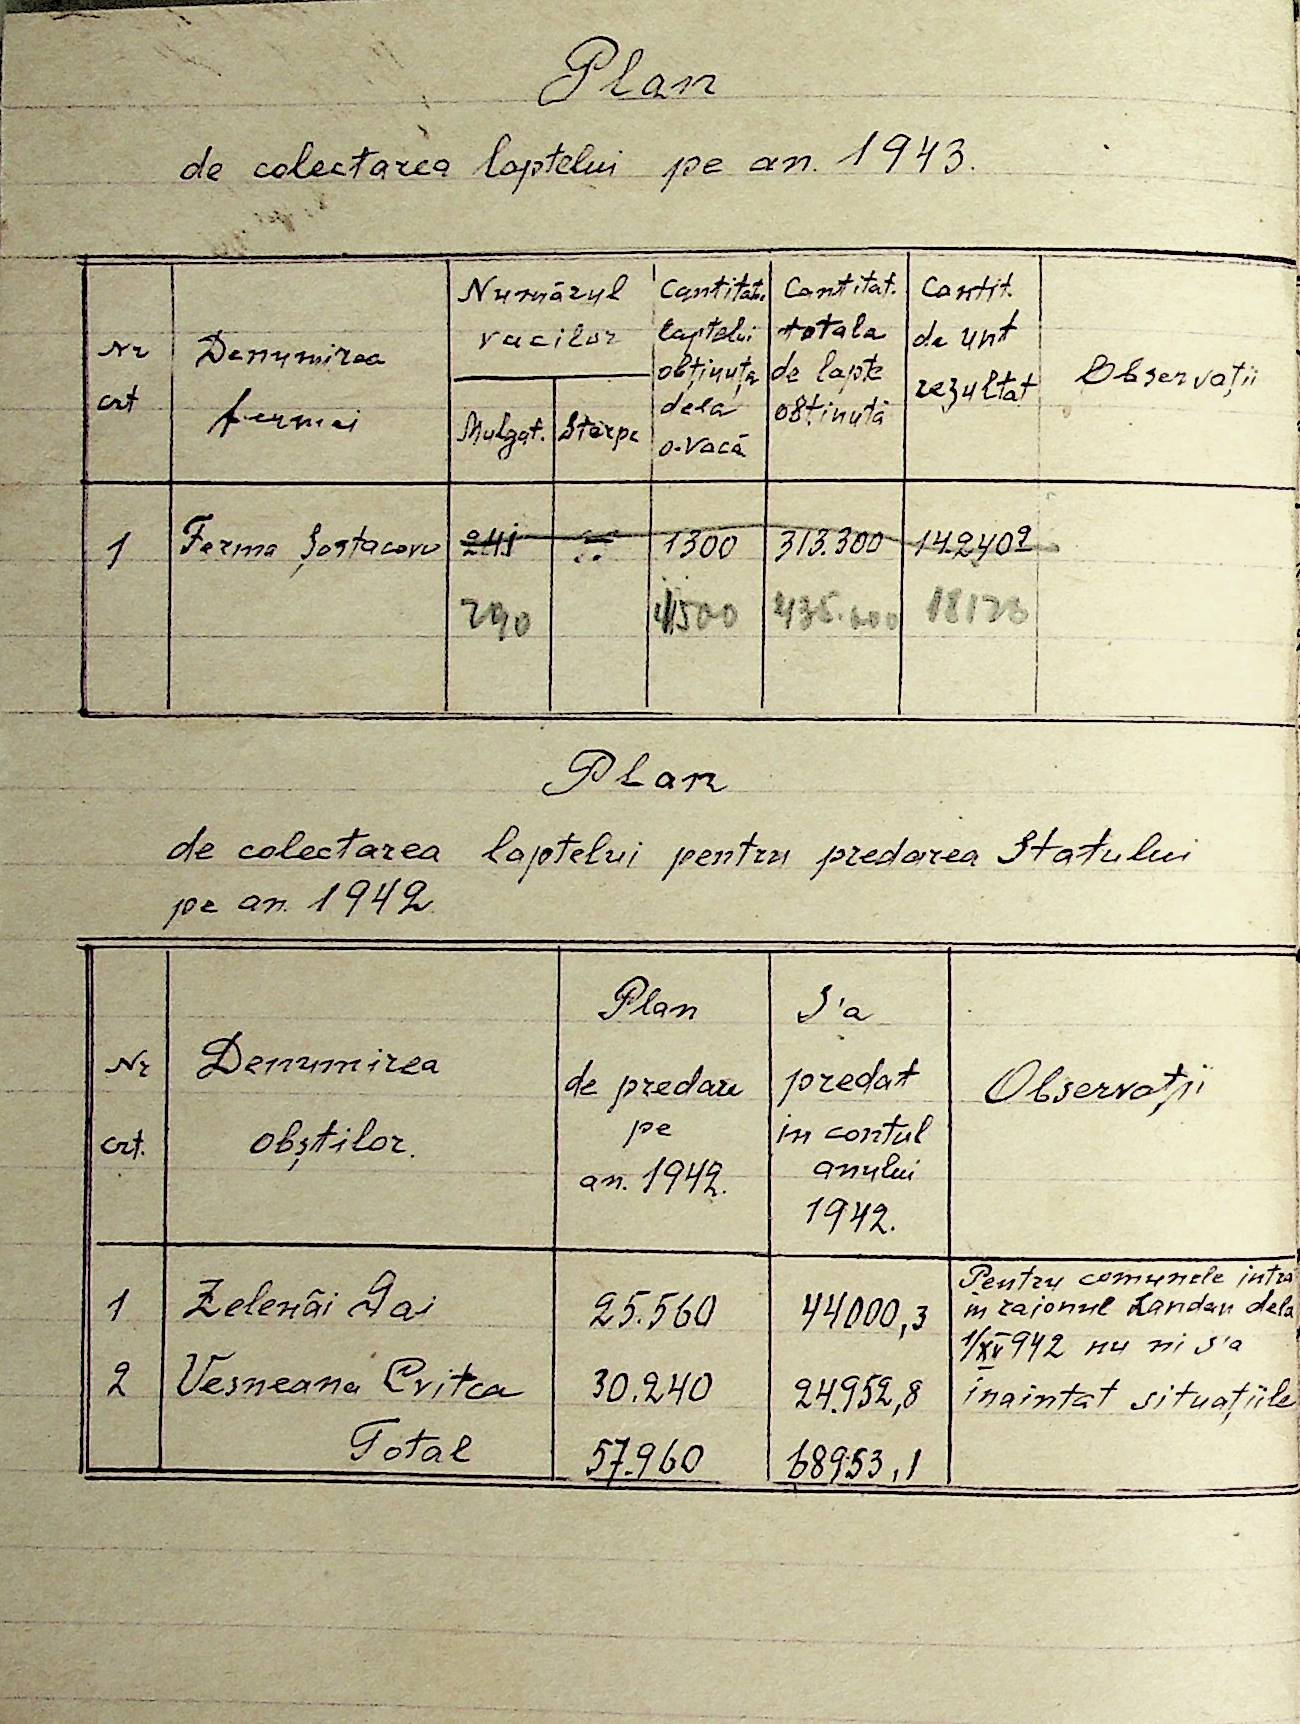 Plan
de colectarea laptelui pe an. 1943.
Nr
crt
Denumirea
fermei
Numărul
vacilor
Mulgat.
Sterpe
Cantitat.
laptelui
obținuta
dela
o.vacă
Cantitat.
totala
de lapte
obținută
Cantit.
de unt
rezultat
Observații
1 Ferma Șostacovo 241 1300 313.300 14240
290 1500 435.000 18123
Plan
de colectarea laptelui pentru predarea Statului
pe an. 1942
Nr
crt.
Denumirea
obștilor.
Plan
de predare
pe
an. 1942.
S'a
predat
in contul
anului
1942.
Observații
1 Zelenâi Gai 25.560 44000,3
2 Vesneana Critca 30.240 24.952,8
Total 57.960 68953,1
Pentru comunele intra
in raionul Landau dela
942 nu ni s'a
inaintat situațiile